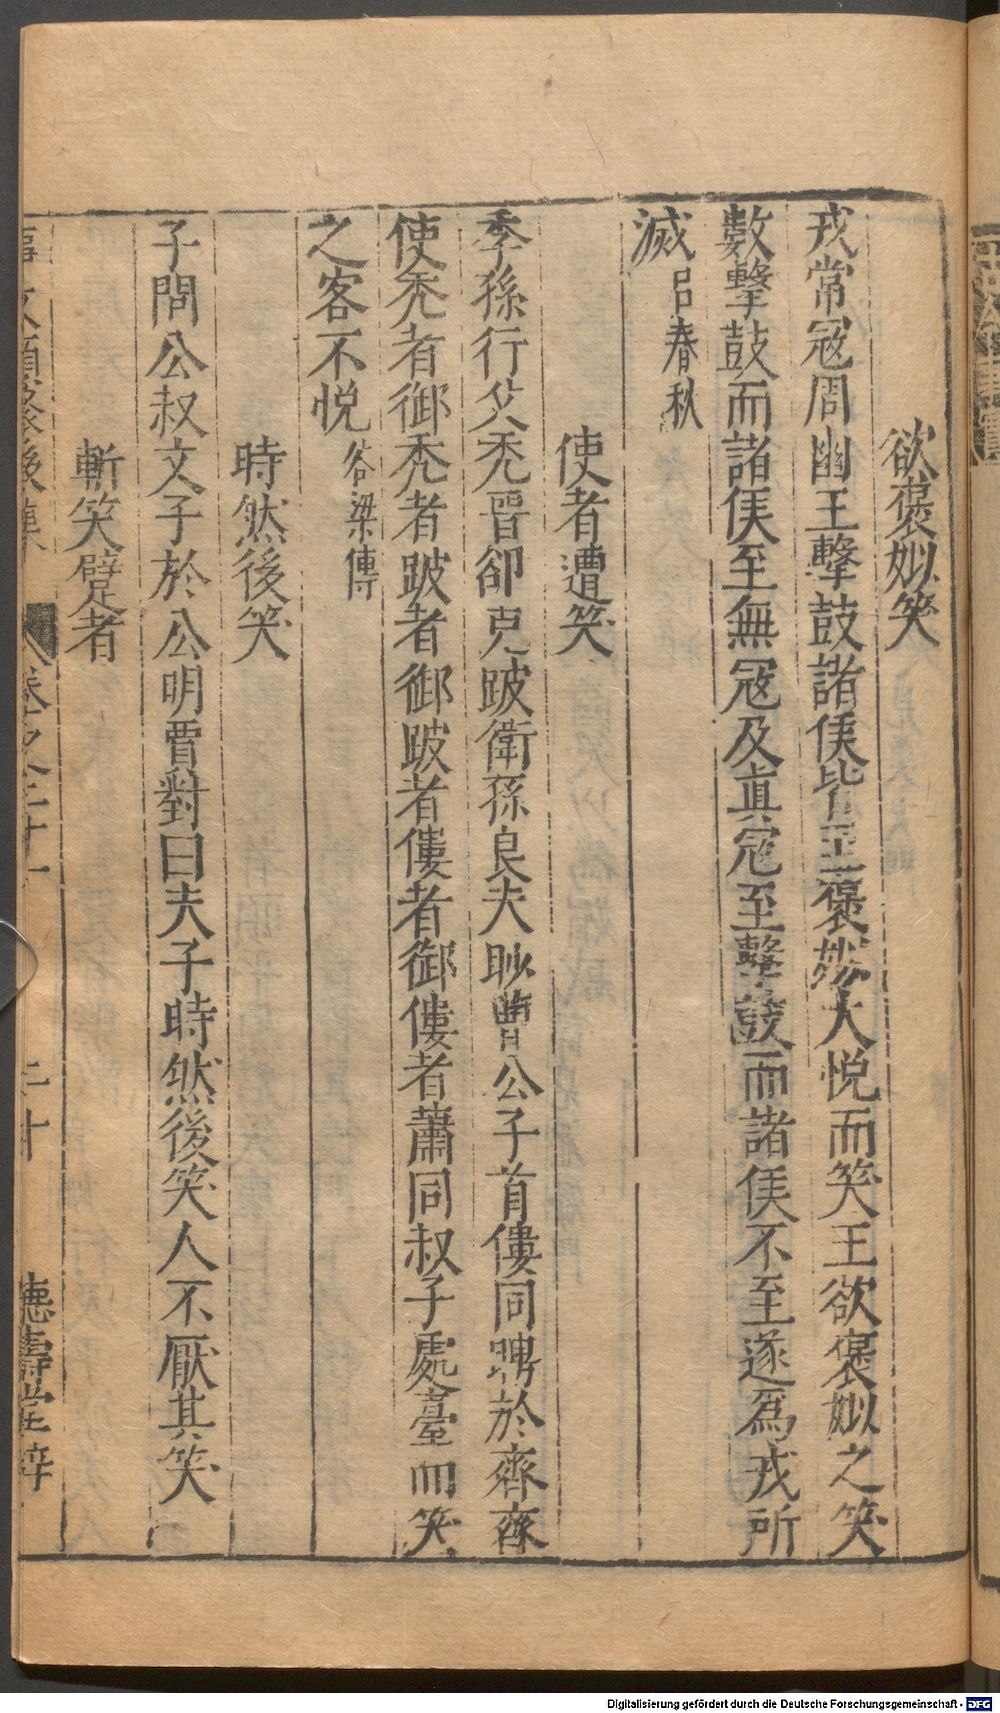 欲褒姒笑
戎常冦周幽王擊鼓諸侯皆至褒姒大悅而笑王欲褒姒之笑
數擊鼓而諸侯至無冦及真冦至擊鼓而諸侯不至遂爲戎所
滅 吕春秋
使者遭笑
季孫行父禿晉卻克跛衛孫良夫眇曹公子首僂同聘於齊齊
使禿者御禿者跛者御跛者僂者御僂者蕭同叔子處臺而笑
之客不悅 谷梁傳
時然後笑
子問公叔文子於公明賈對曰夫子時然後笑人不厭其笑
斬笑躄者
事文類聚後集 卷之二十 二十 德壽堂梓
Digitalisierung gefördert durch die Deutsche Forschungsgemeinschaft - DFG